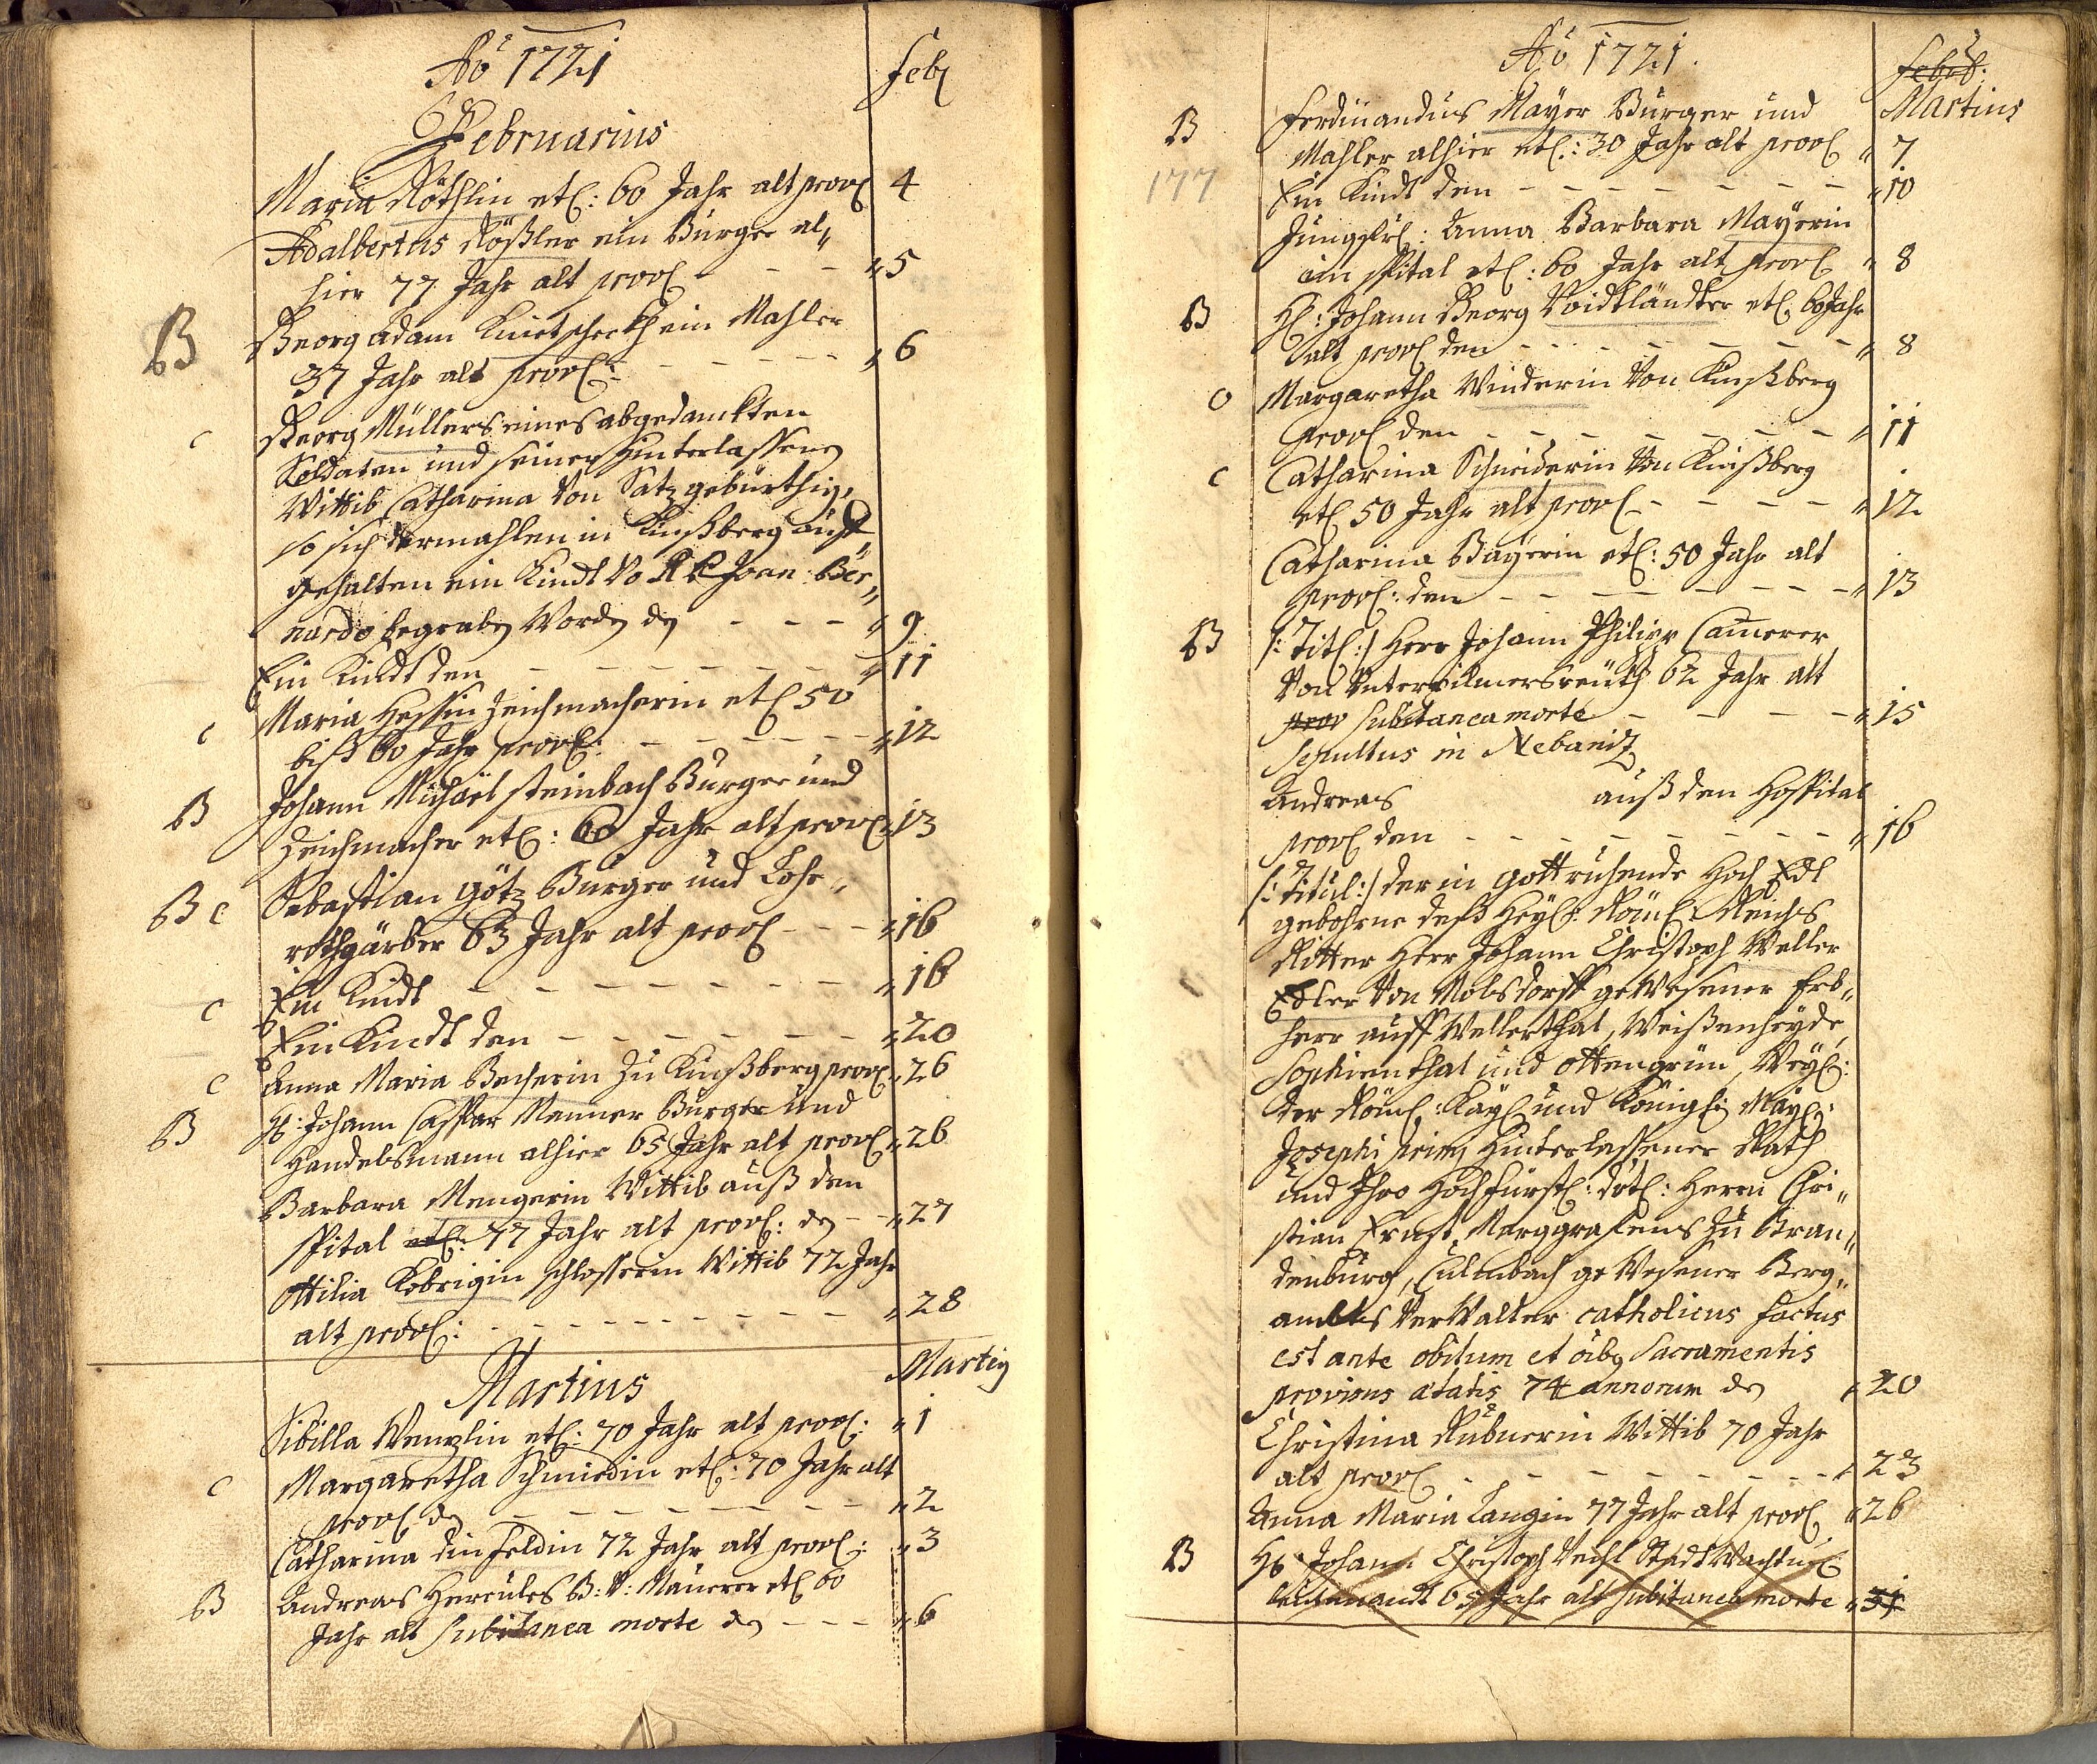 Aõ 1721
Feb
Februarius
Maria Röthlin etc: 60 Jahr alt prov 4
Adalbertus Rößler ein Burger al„
hier 77 Jahr alt prov - - - „ 5
B Georg Adam ein Mahler
37 Jahr alt prov: - - - - „ 6
c Georg Müllers eines abgedanckten
Soldaten und seiner hinterlassenen
Wittib Catharina von Satz gebürthig,
so sich dermahlen in Kinßberg auff
gehalten ein Kindt Joan: Ber„
nardo begraben worden den - - - „ 9
Ein Kindt den - - - - - - „ 11
c Maria Hessin Zeichmacherin etc 50
biß 60 Jahr prov: - - - - - „ 12
B Johann Michael Steinbach Burger und
Zeichmacher etc: 60 Jahr alt prov „ 13
B c Sebastian Götz Burger und Lohe„
rothgärber 63 Jahr alt prov - - - „ 16
c Ein Kindt - - - - - - - „ 16
Ein Kindt den - - - - - - „ 20
c Anna Maria Becherin zu Kinßberg prov „ 26
B H: Johann Caspar Menner Burger und
Handelsmann alhier 65 Jahr alt prov „ 26
Barbara Mengerin Wittib auß den
Spital etc: 77 Jahr alt prov: den - - „ 27
Ottilia Kobrigin Schlosserin Wittib 72 Jahr
alt prov: - - - - - - - - „ 28
Martius
Martiy
Sibilla Wentzlin etc: 70 Jahr alt prov: „ 1
c Margaretha Schmiedin etc: 70 Jahr alt
prov den - - - - - - - „ 2
Catharina Dinfeldin 72 Jahr alt prov: „ 3
B Andreas Hercules B: v: Maurer etc 60
Jahr alt Subitanea morte den - - - „ 6
Aõ 1721.
Feb
Martius
B Ferdinandus Mayer Burger und
Mahler alhier etc: 30 Jahr alt prov „ 7
177 Ein Kindt den - - - - - - - „ 10
Jungfr: Anna Barbara Mayerin
im Spital etc: 60 Jahr alt prov „ 8
B H: Johann Georg Voidtländter etc 60 Jahr
alt prov den - - - - - - - „ 8
c Margaretha Winderin von Kinßberg
prov den - - - - - - - „ 11
c Catharina Schneiderin von Kinßberg
etc 50 Jahr alt prov - - - - „ 12
Catharina Bayerin etc: 50 Jahr alt
prov: den - - - - - - - „ 13
B /: Titl :/ Herr Johann Philipp Camerer
von Unterpilmersreuth 62 Jahr alt
prov Subitanea morte - - - - „ 15
Sepultus in Nebanitz
Andreas auß den Hospital
prov den - - - - - - - „ 16
/: Titul :/ der in Gott ruhende Hoch Edl
gebohrne deß Heyl: Röm: Reichs
Ritter Herr Johann Christoph Weller
Edler von Molsdorff gewesener Erb„
herr auff Wellerthal, Weißenheyde,
Sophienthal und Ottengrün, Weyl:
der Röm: Kay und König: May:
Josephi primi hinterlassener Rath
und Ihro Hochfürstl: drtl: Herrn Chri„
stian Ernst Marggrafens zu Bran„
denburg, Culmbach gewesener Berg„
ambts Verwalter catholicus factus
est ante obitum et oibg Sacramentis
provisus ætatis 74 annorum den „ 20
Christina Rubnerin Wittib 70 Jahr
alt prov - - - - - - - „ 23
Anna Maria Langin 77 Jahr alt prov „ 26
B H: Johann Christoph Stadt Wachtm:
Leutenandt 65 Jahr alt Subitanea morte „ 31